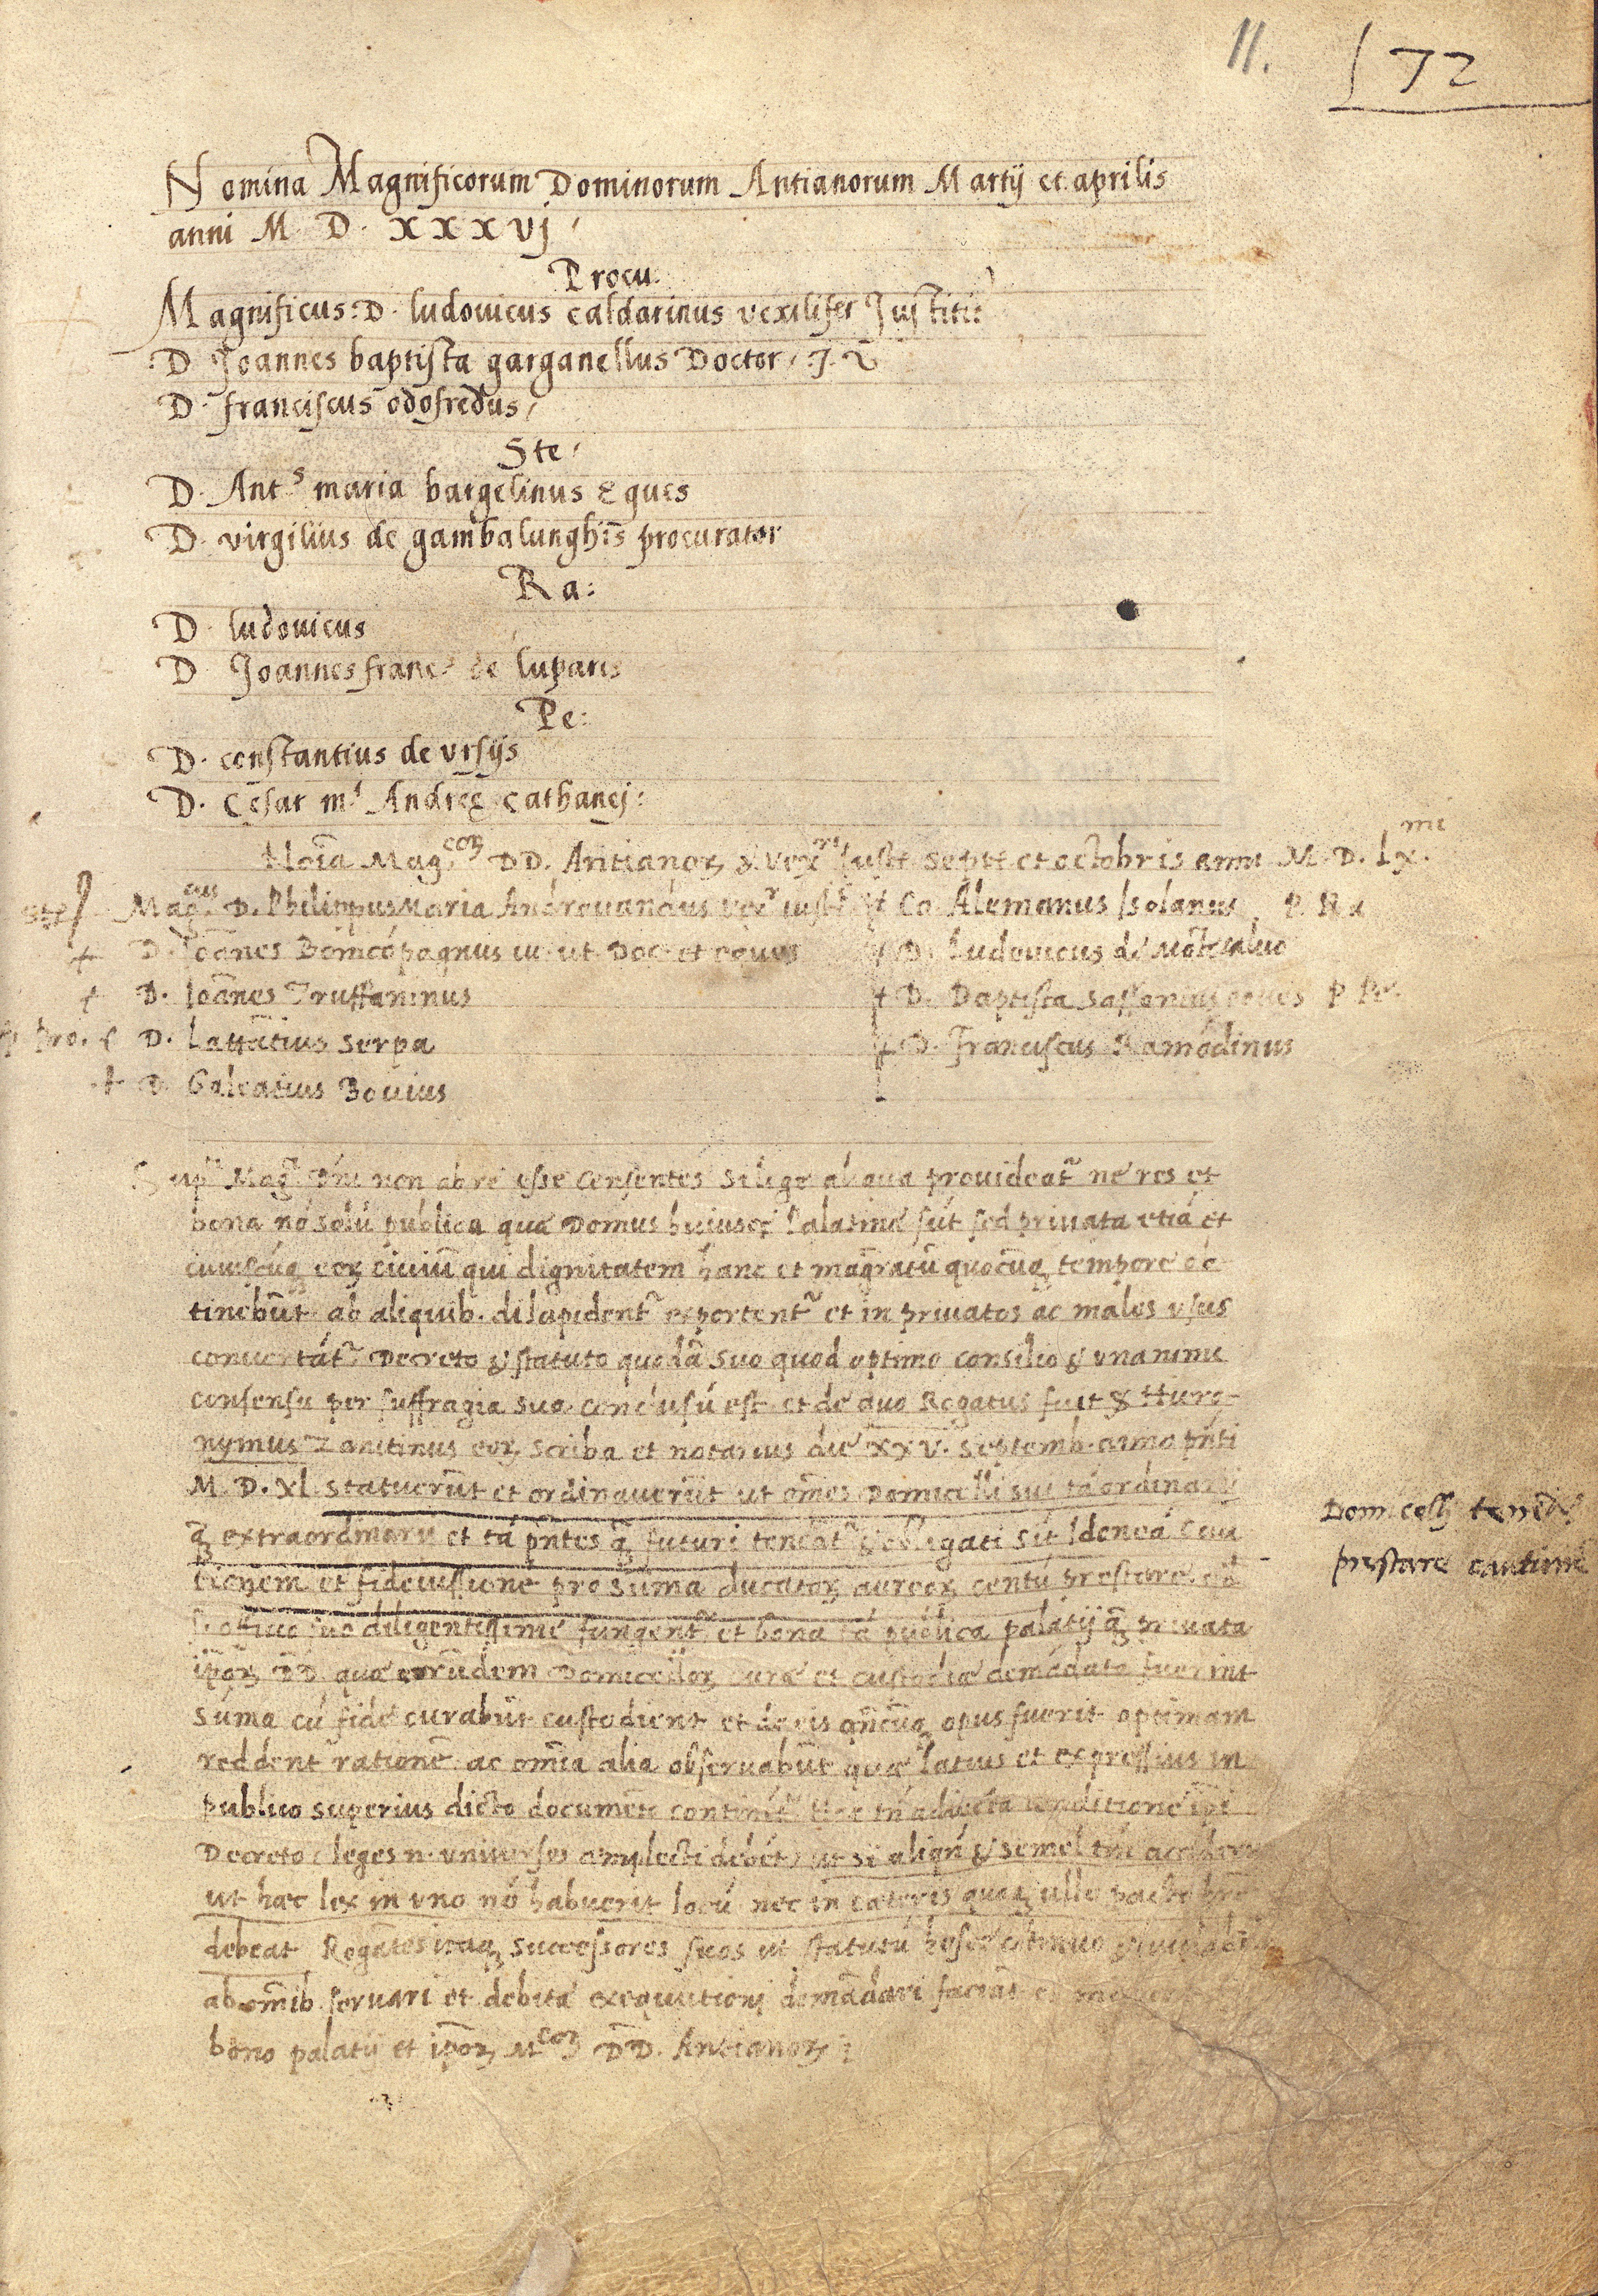 11.
72
Nomina Magnificorum Dominorum Antianorum Martij et aprilis
anni M. D. xxxvj
Procu.
Magnificus: D. ludouicus caldarinus vexilifer Justitie
D Joannes baptista garganellus Doctor J. V
D. franciscus odofredus
Ste
D. Antˢ maria bargelinus Eques
D. virgilius de gambalunghis procurator
Ra:
D. ludouicus
D Joannes franc de luparis
Pe:
D. constantius de vrsijs
D. Cesar mⁱ Andreę cathanej:
Noīa Mag.coꝝ DD. Antianoꝝ & vexʳⁱ Justᵉ Septᵉ et octobris anni M. D. Lx.
Ste
Mag.cus D. Philippus Maria Androuandus vexʳ iustᵉ
Co Alemanus Isolanus P. Ra
D. Ioānes Boncōpagnus iu. ut. Doc. et eques
D. Ludouicus de Mōtecaluo
D. Ioānes Truffaninus
D. Baptista Sassonius eques P Pe.
Pro.
D. Lattātius Serpa
D. Franciscus Ramōdinus
D. Galeatius Bouius
non ab re esse censentes si lege aliqua prouideat~ ne res et
bona nō solū publica quæ Domus huiusce Palatinæ sūt sed priuata etiā et
cuiuscūq eoꝝ ciuiū qui dignitatem hanc et magratū quocūq tempore ob
tinebūt ab aliquib. dilapident~ exportent~ et in priuatos ac malos vsus
conuertāt~ Decreto & statuto quodā suo quod optimo consilio & vnanimi
consensu per suffragia sua conclusū est et de quo Rogatus fuit & Hiero-
nymus Zanitinus eoꝝ scriba et notarius die XXV. Septemb. anno pn̄ti
M. D. XL statuerūt et ordinauerūt ut om̄es Domicelli sui tā ordinarij
q̄ extraordinarij et tā pn̄tes q̄ futuri teneāt~ & obligati sīt Idoneā Cau
tionem et fideiussionē pro sūma ducatoꝝ aureoꝝ centū prestare
officio suo diligentissime fungent~ et bona tā publica palatij q̄ priuata
ip̄oꝝ DD. quæ eorūdem Domicelloꝝ curæ et custodiæ demādata fuerint
sūma cū fide curabūt custodient et de eis qn̄cūq opus fuerit optimam
reddent rationē ac om̄ia alia obseruabūt quæ latius et expressius in
publico superius dicto documēto continēt~ Hac tn̄ adiecta conditione ip̄i
Decreto (leges n. vniuersos amplecti debēt) ut si aliqn̄ & semel tm̄
ut hæc lex in vno nō habuerit locū nec in cæteris quoq ullo pacto
debeat Rogātes itaq successores suos ut statutū hoc cōtinuo
ab om̄ib. seruari et debitæ exequutionj demādari faciāt
bono palatij et ip̄oꝝ Mcoꝝ DD. Antianoꝝ:
Domicelli tenēt~
prestare cautionē